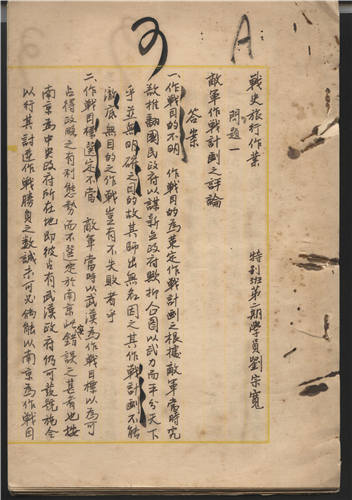 A
戰史旅行作業
特別班第二期學員劉宗寬
問題一
敵軍作戰計劃之評論
答案
一、作戰目的不明 作戰目的為策定作戰計劃之根據敵軍當時究
欲推翻國民政府以謀新立政府歟抑企圖以武力而平分天下
乎並無明確之目的故其師出無名因之其作戰計劃不能
澈底無目的之作戰豈有不失敗者乎
二、作戰目標選定不當 敵軍當時以武漢為作戰目標以為可
占得政略之有利態勢而不選定於南京此錯誤之甚者也按
南京為中央政府所在地即彼占有武漢政府仍可發號施令
以行其討逆作戰勝負之數誠未可必倘能以南京為作戰目